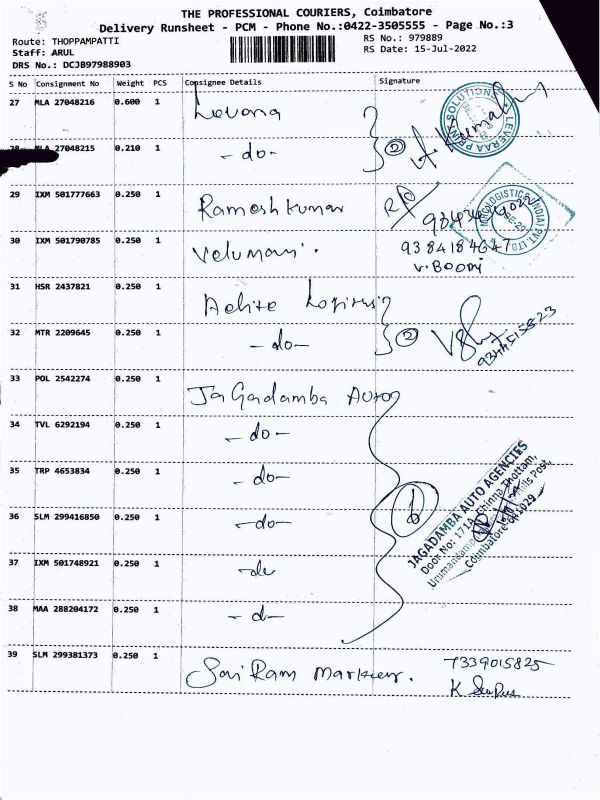 THE PROFESSIONAL COURIERS, Coimbatore
Delivery Runsheet - PCM - Phone No.:0422-3505555 - Page No.:3
Route: THOPPAMPATTI
RS No.: 979889
Staff: ARUL
RS Date: 15-Jul-2022
DRS No.: DCJB97988903
S No Consignment No Weight PCS Consignee Details Signature
27 MLA 27048216 0.600 1
LEVERAA PRINT SOLUTIONS
28 MLA 27048215 0.210 1 -do- 2
29 IXM 501777663 0.250 1 Ramesh kumar
LOGISTICS (INDIA) PVT. LTD.
30 IXM 501790785 0.250 1 Velumani. 9384184647
V. BOOMI
31 HSR 2437821 0.250 1
32 MTR 2209645 0.250 1 -do- 2
9344515823
33 POL 2542274 0.250 1 JaGadamba Auto
34 TVL 6292194 0.250 1 -do-
35 TRP 4653834 0.250 1 -do-
36 SLM 299416850 0.250 1 -do- 6
JAGADAMBA AUTO AGENCIES
Door No: 171A, Chinna Thottam,
Mills Post,
Coimbatore 641029
37 IXM 501748921 0.250 1 -do
38 MAA 288204172 0.250 1 -d-
39 SLM 299381373 0.250 1 Sai Ram 7339015825
K